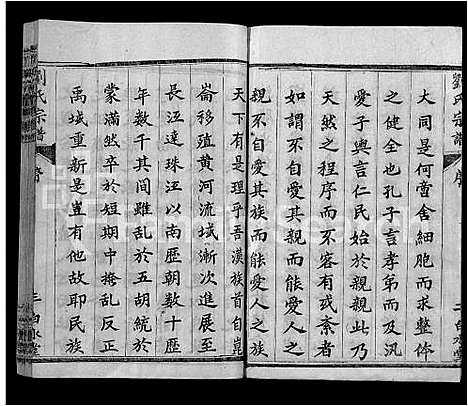 劉氏宗譜
序
二
白水堂
大同是何啻舍細胞而求整体
之健全也孔子言孝弟而及汎
愛子輿言仁民始於親親此乃
天然之程序而不容有或紊者
如謂不自愛其親而能愛人之
親不自愛其族而能愛人之族
天下有是理乎吾漢族首自崑
崙移殖黃河流域漸次進展至
長江達珠江以南歷朝數十歷
年數千其間雖亂於五胡統於
蒙滿然卒於短期中撥亂反正
禹域重新是豈有他故耶民族
劉氏宗譜
序
三
白水堂